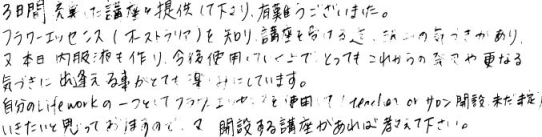 3日間 充実した講座を提供して下さり、有難うございました。
フラワーエッセンス(オーストラリア)を知り、講座を受ける 気づきがあり、
又 本日 内服液も作り、今後使用していく上で とってもこれからの 更なる
気づきに出逢える事がとても楽しみにしています。
自分のLifeworkの一つとしてフラワーエッセンスを使用して teacher or サロン開設 未だ未定)
いきたいと思っておりますので、又 開設する講座があれば教えて下さい。